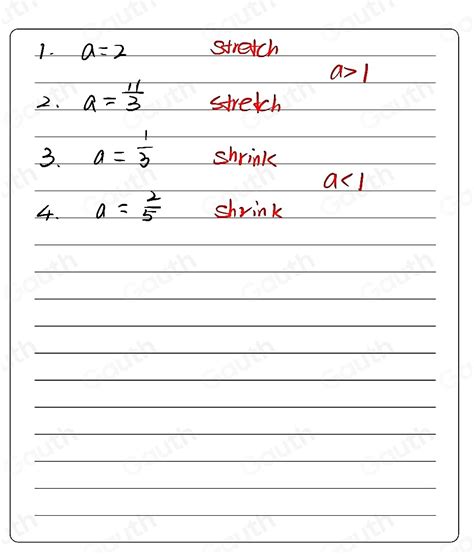 1. a=2 stretch
a>1
2. a=11/3 stretch
3. a=1/3 shrink
a<1
4. a=2/5 shrink